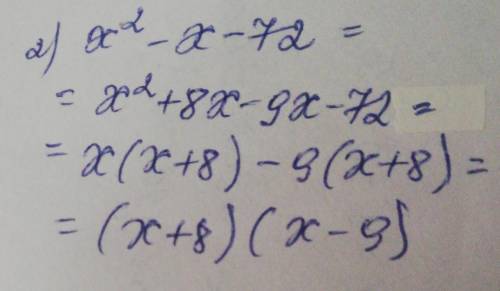 2) x² - x - 72 =
= x² + 8x - 9x - 72 =
= x(x+8) - 9(x+8) =
= (x+8)(x-9)